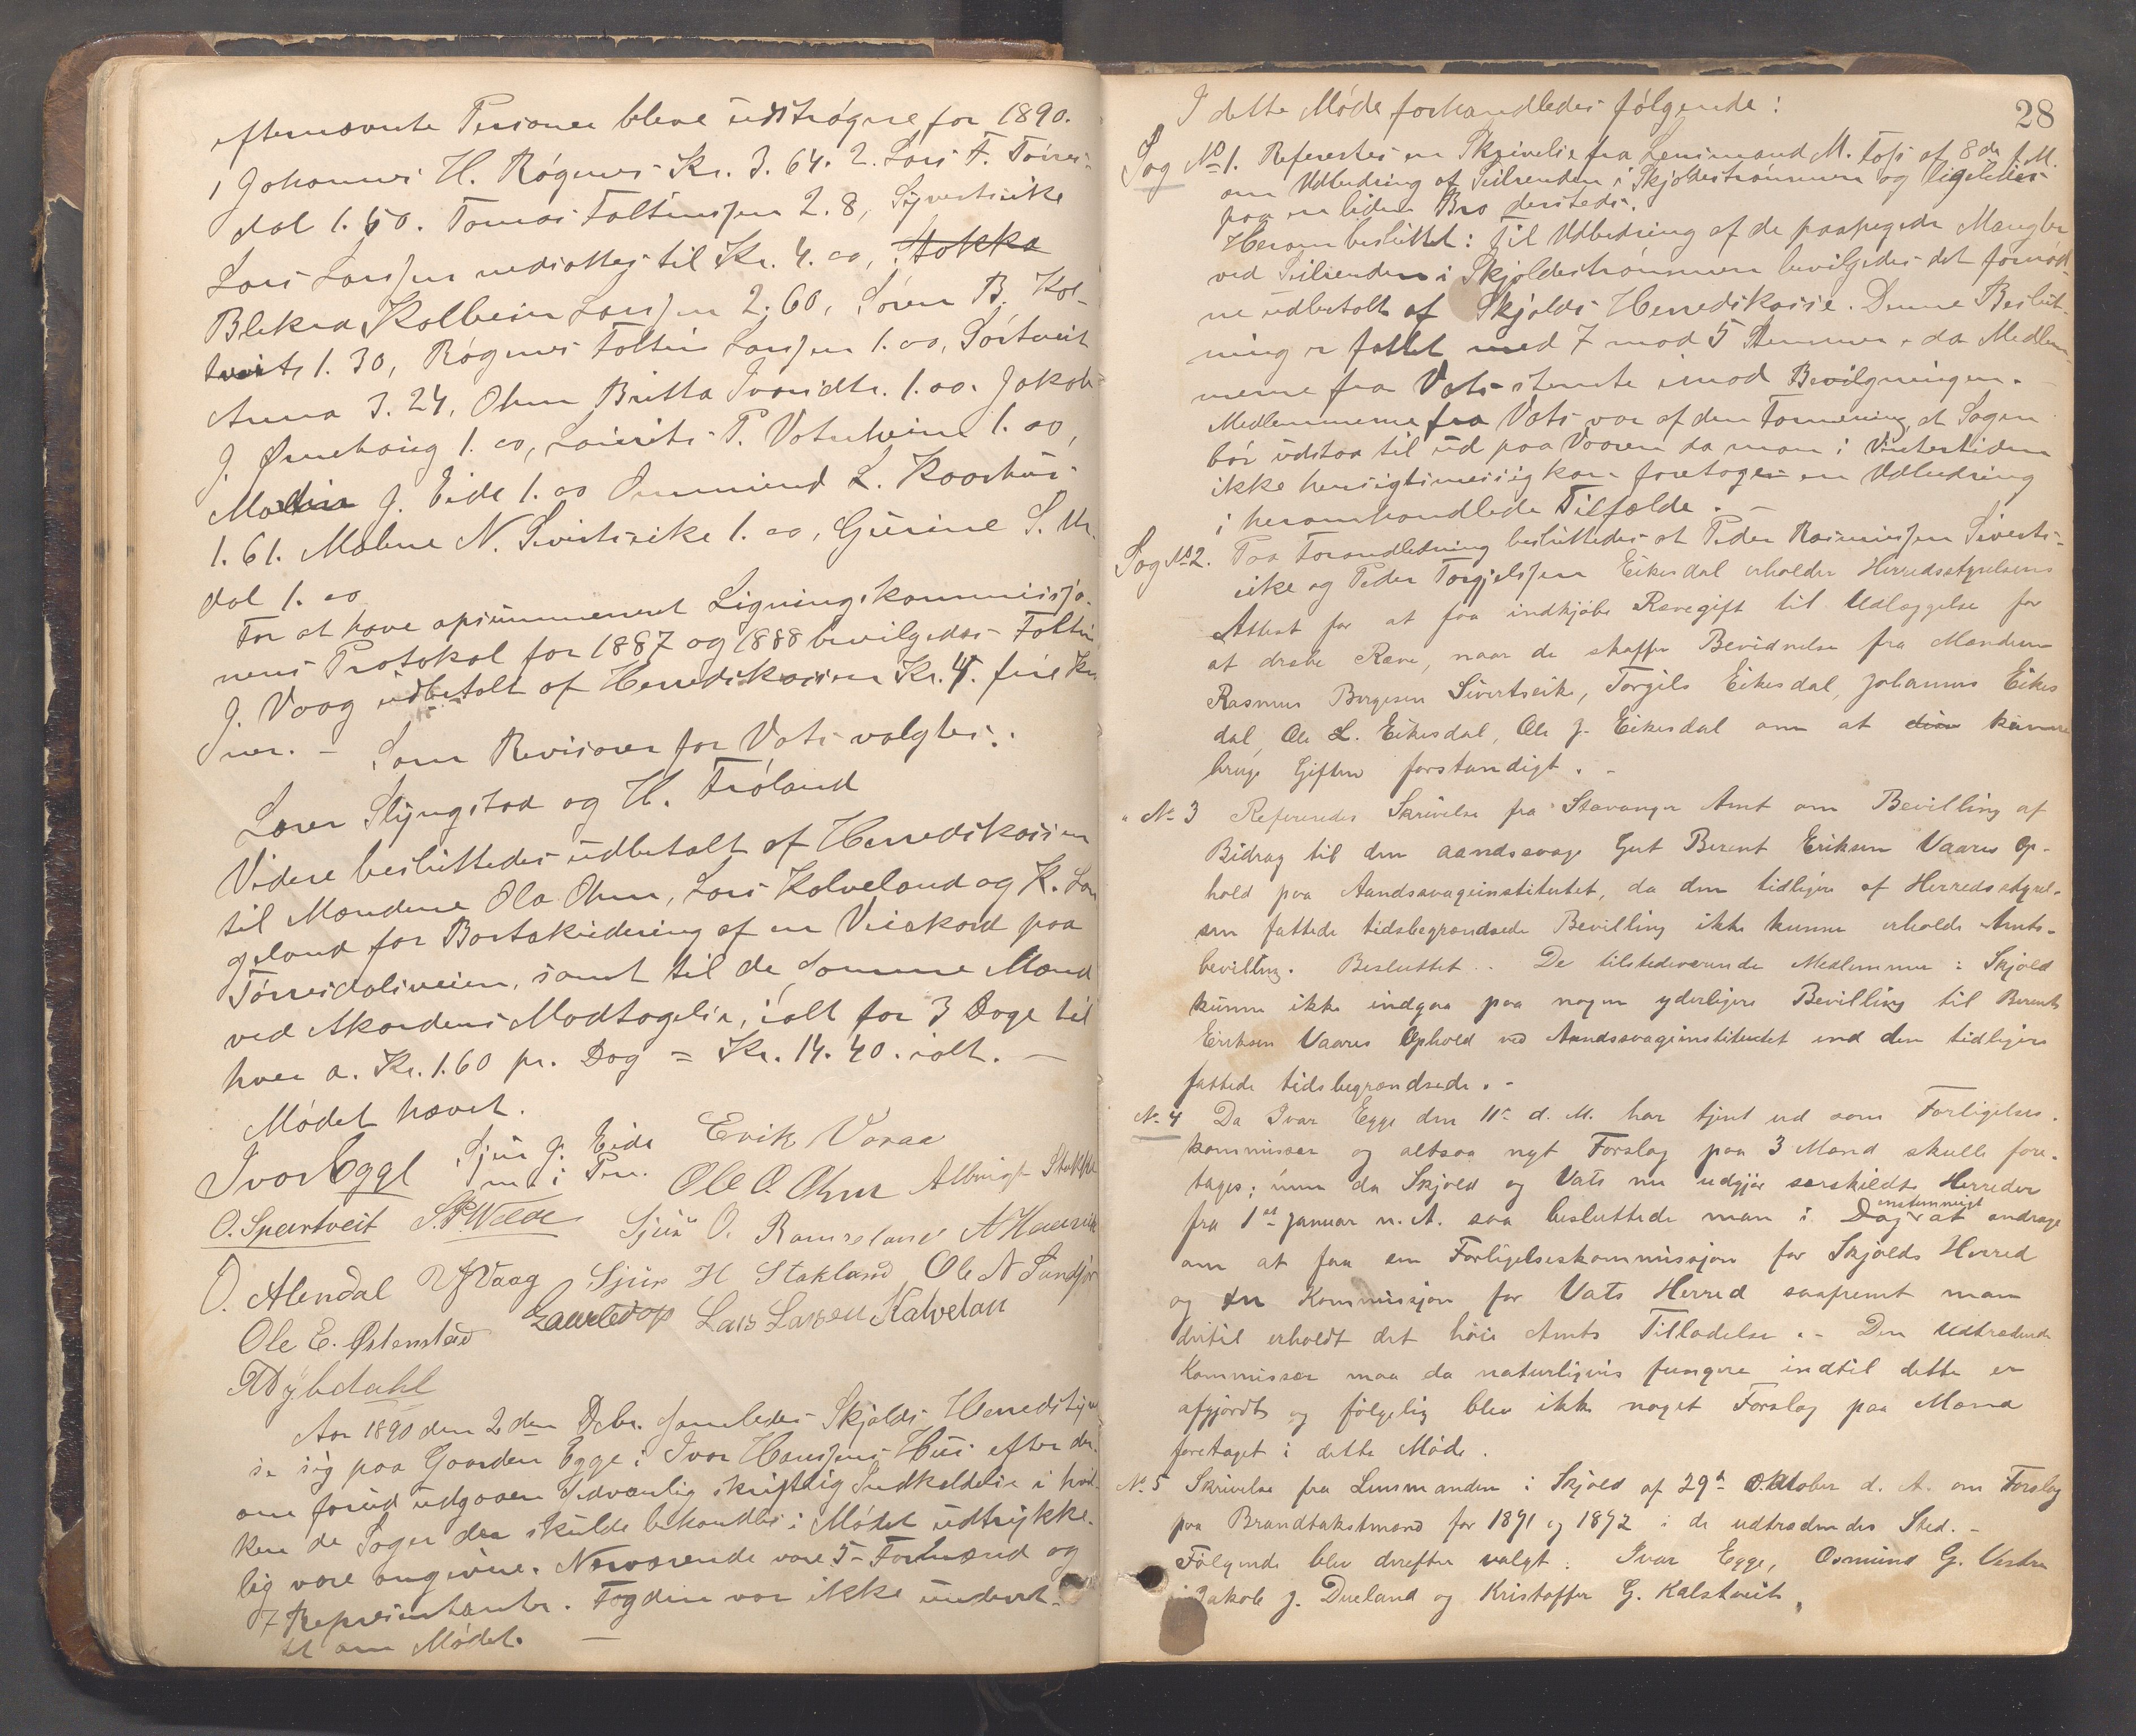 efternævnte Personer bleve udstrøgne for 1890.
1 Johannes H. Røgenes Kr. 3.64. 2. Lars F. Tørres-
dal 1.50. Tomas Foltinssen 2.8, Syvertseike
Lars Larssen nedsattes til Kr. 4.00, Stokka
Blekra Kolbein Larssen 2.60, Søren B. Kol-
tveit 1.30, Røgenes Foltin Larssen 1.00, Sørtveit
Anna 3.24, Ohm Britta Ivarsdtr. 1.00. Jakob
J. Ørnehaug 1.00, Laurits P. Vatneheim 1.00,
J. Eide 1.00 Ommund L. Kaarhus
1.61. Malene N. Sivertseike 1.00, Gurine S.
dal 1.00
For at have opsummeret Ligningskommissjo-
nens Protokol for 1887 og 1888 bevilgedes Foltin
J. Vaag udbetalt af Herredskassen Kr. 4. fire Kro
ner. – Som Revisorer for Vats valgtes:
Lærer Slyngstad og H. Frøland
Videre besluttedes udbetalt af Herredskassen
til Mændene Ola Ohm, Lars Kalveland og K. Lan
geland for Bortakkordering af en Veiakord paa
Tørresdalsveien, samt til de samme Mænd
ved Akordens Modtagelse, ialt for 3 Dage til
hver a. Kr. 1.60 pr. Dag = Kr. 14.40. ialt. –
Mødet hævet.
Ivar Egge Sjur J. Eide Erik Voraa
m. i Pen. Ole O. Ohm Albrigt Stakke
O. Spartveit S. P. Wede Sjur O. Ramseland A Haavik
O. Alendal Vaag Sjur H Stakland Ole N Sundfør
Ole E. Østenstad Lars Larsen Kalvelan
Dybdahl
Aar 1890 den 2den Debr. samledes Skjolds Herredstyrel
se sig paa Gaarden Egge i Ivar Hanssens Hus efter der-
om forud udgaaen sedvanlig skriftlig Indkaldelse i hvil-
ken de Sager der skulde behandles i Mødet udtrykke-
lig vare angivne. Nærværende vare 5 Formænd og
7 Repræsentanter. Fogden var ikke underret-
tet om Mødet. –
28
I dette Møde forhandledes følgende:
Sag No 1. Referertes en Skrivelse fra Lensmand M. Tofs af 8de f. M.
om Udbedring af Seilrenden i Skjoldestrømmen og ligeledes
paa en liden Bro dersteds.
Herom besluttet: Til Udbedring af de paapegede Mangler
ved Seilrenden i Skjoldestrømmen bevilgedes det fornød-
ne udbetalt af Skjolds Herredskasse. Denne Beslut-
ning er fattet med 7 mod 5 Stemmer, da Medlem-
merne fra Vats stemte imod Bevilgningen.
Medlemmerne fra Vats var af den Formening, at Sagen
bør udstaa til ud paa Vaaren da man i Vintertiden
ikke hensigtsmessig kan foretage en Udbedring
i heromhandlede Tilfælde. –
Sag No 2. Paa Foranledning besluttedes at Peder Rasmussen Siverts-
eike og Peder Torgjelssen Eikesdal erholder Herredsstyrelsens
Attest for at faa indkjøbe Rævegift til Udlæggelse for
at dræbe Ræve, naar de skaffer Bevidnelse fra Mændene
Rasmus Børgesen Sivertseike, Torgils Eikesdal, Johannes Eikes
dal, Ole L. Eikesdal, Ole J. Eikesdal om at disse kunne
bruge Giften forstandigt. –
" No 3 Refereredes Skrivelse fra Stavanger Amt om Bevilling af
Bidrag til den aandssvage Gut Berent Eriksen Vaares Op-
hold paa Aandssvageinstitutet, da den tidligere af Herredsstyrel-
sen fattede tidsbegrændsede Bevilling ikke kunne erholde Amts-
bevilling. Besluttet: De tilstedeværende Medlemmer i Skjold
kunne ikke indgaa paa nogen yderligere Bevilling til Berent
Eriksen Vaares Ophold ved Aandssvageinstitutet end den tidligere
fattede tidsbegrændsede. –
No 4 Da Ivar Egge den 11te d. M. har tjent ud som Forligelses-
kommissær og altsaa nyt Forslag paa 3 Mænd skulle fore-
tages; men da Skjold og Vats nu udgjør særskildte Herreder
fra 1ste Januar n. A. saa besluttede man i Dag enstemmigt at andrage
om at faa en Forligelseskommissjon for Skjolds Herred
og en Kommissjon for Vats Herred saafremt man
dertil erholdt det høie Amts Tilladelse. – Den Udtrædende
Kommissær maa da naturligvis fungere indtil dette er
afgjordt og følgelig blev ikke noget Forslag paa Mænd
foretaget i dette Møde.
No 5 Skrivelse fra Lensmanden i Skjold af 29de Oktober d. A. om Forslag
paa Brandtakstmænd for 1891 og 1892 i de udtrædendes Sted. –
Følgende blev derefter valgt: Ivar Egge, Osmund G. Vestre
Jakob J. Dueland og Kristoffer G. Kalstveit.